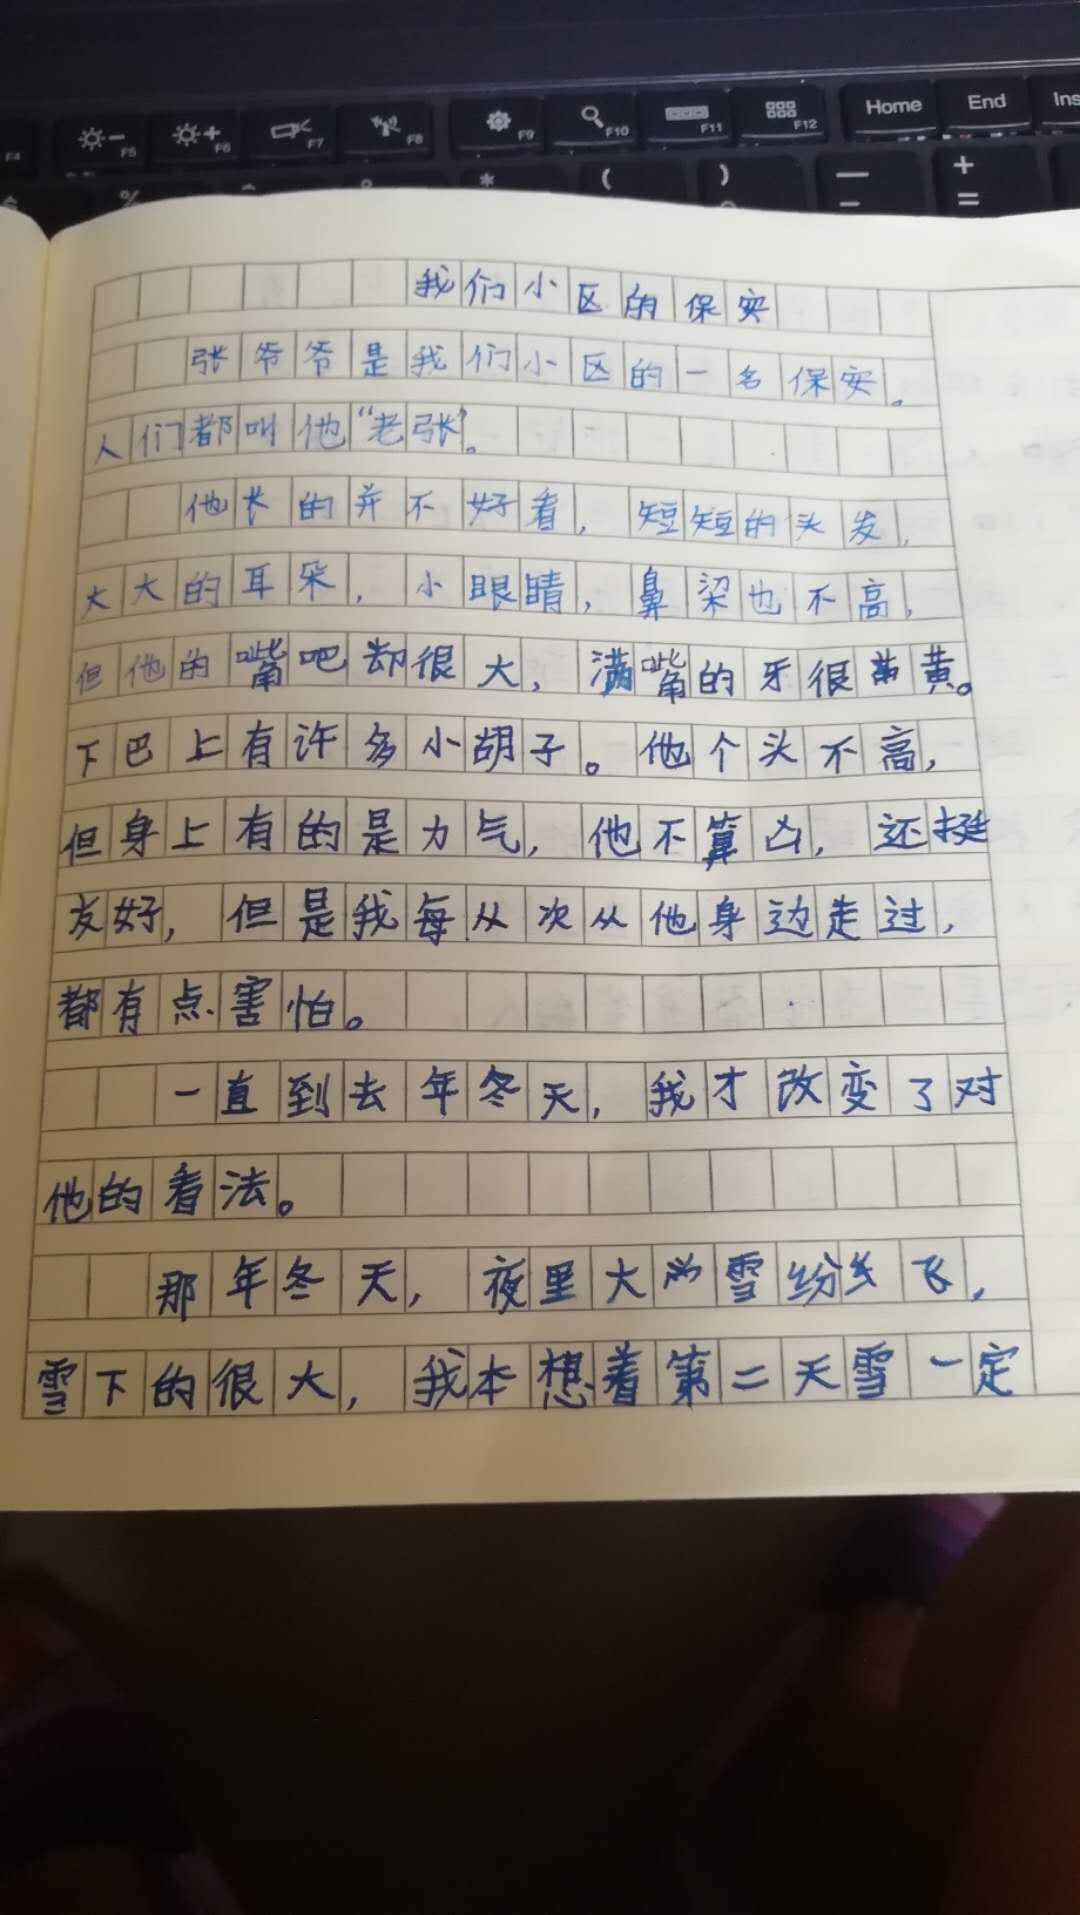 F4 F5 F6 F7 F8 F9 F10 F11 F12 Home End Ins
% * ( ) — - + =
我们小区的保安
张爷爷是我们小区的一名保安。
人们都叫他“老张”。
他长的并不好看，短短的头发，
大大的耳朵，小眼睛，鼻梁也不高，
但他的嘴吧却很大，满嘴的牙很黄。
下巴上有许多小胡子。他个头不高，
但身上有的是力气，他不算凶，还挺
友好，但是我每从次从他身边走过，
都有点害怕。
一直到去年冬天，我才改变了对
他的看法。
那年冬天，夜里大雪纷飞，
雪下的很大，我本想着第二天雪一定